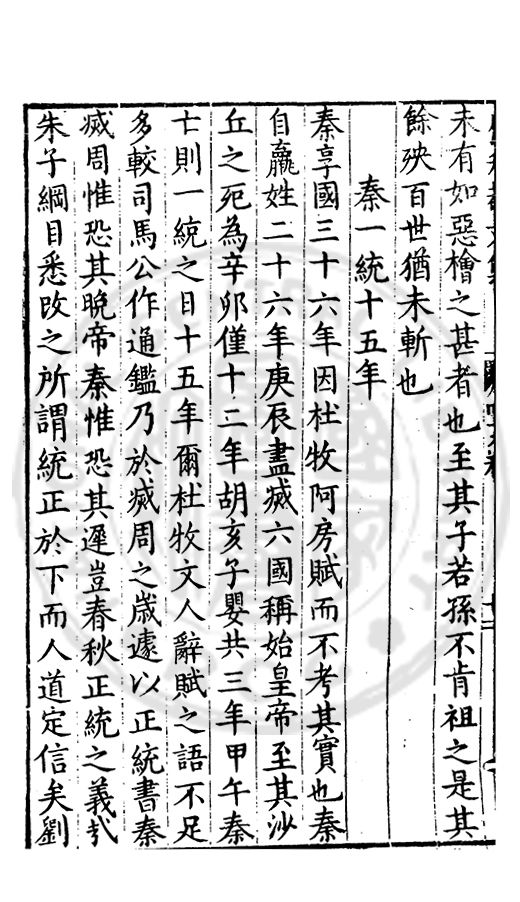 未有如惡檜之甚者也至其子若孫不肯祖之是其
餘殃百世猶未斬也
秦一統十五年
秦享國三十六年因杜牧阿房賦而不考其實也秦
自嬴姓二十六年庚辰盡滅六國稱始皇帝至其沙
丘之死為辛卯僅十二年胡亥子嬰共三年甲午秦
亡則一統之目十五年爾杜牧文人辭賦之語不足
多較司馬公作通鑑乃於滅周之歲遽以正統書秦
滅周惟恐其晚帝秦惟恐其遲豈春秋正統之義哉
朱子綱目悉改之所謂統正於下而人道定信矣劉